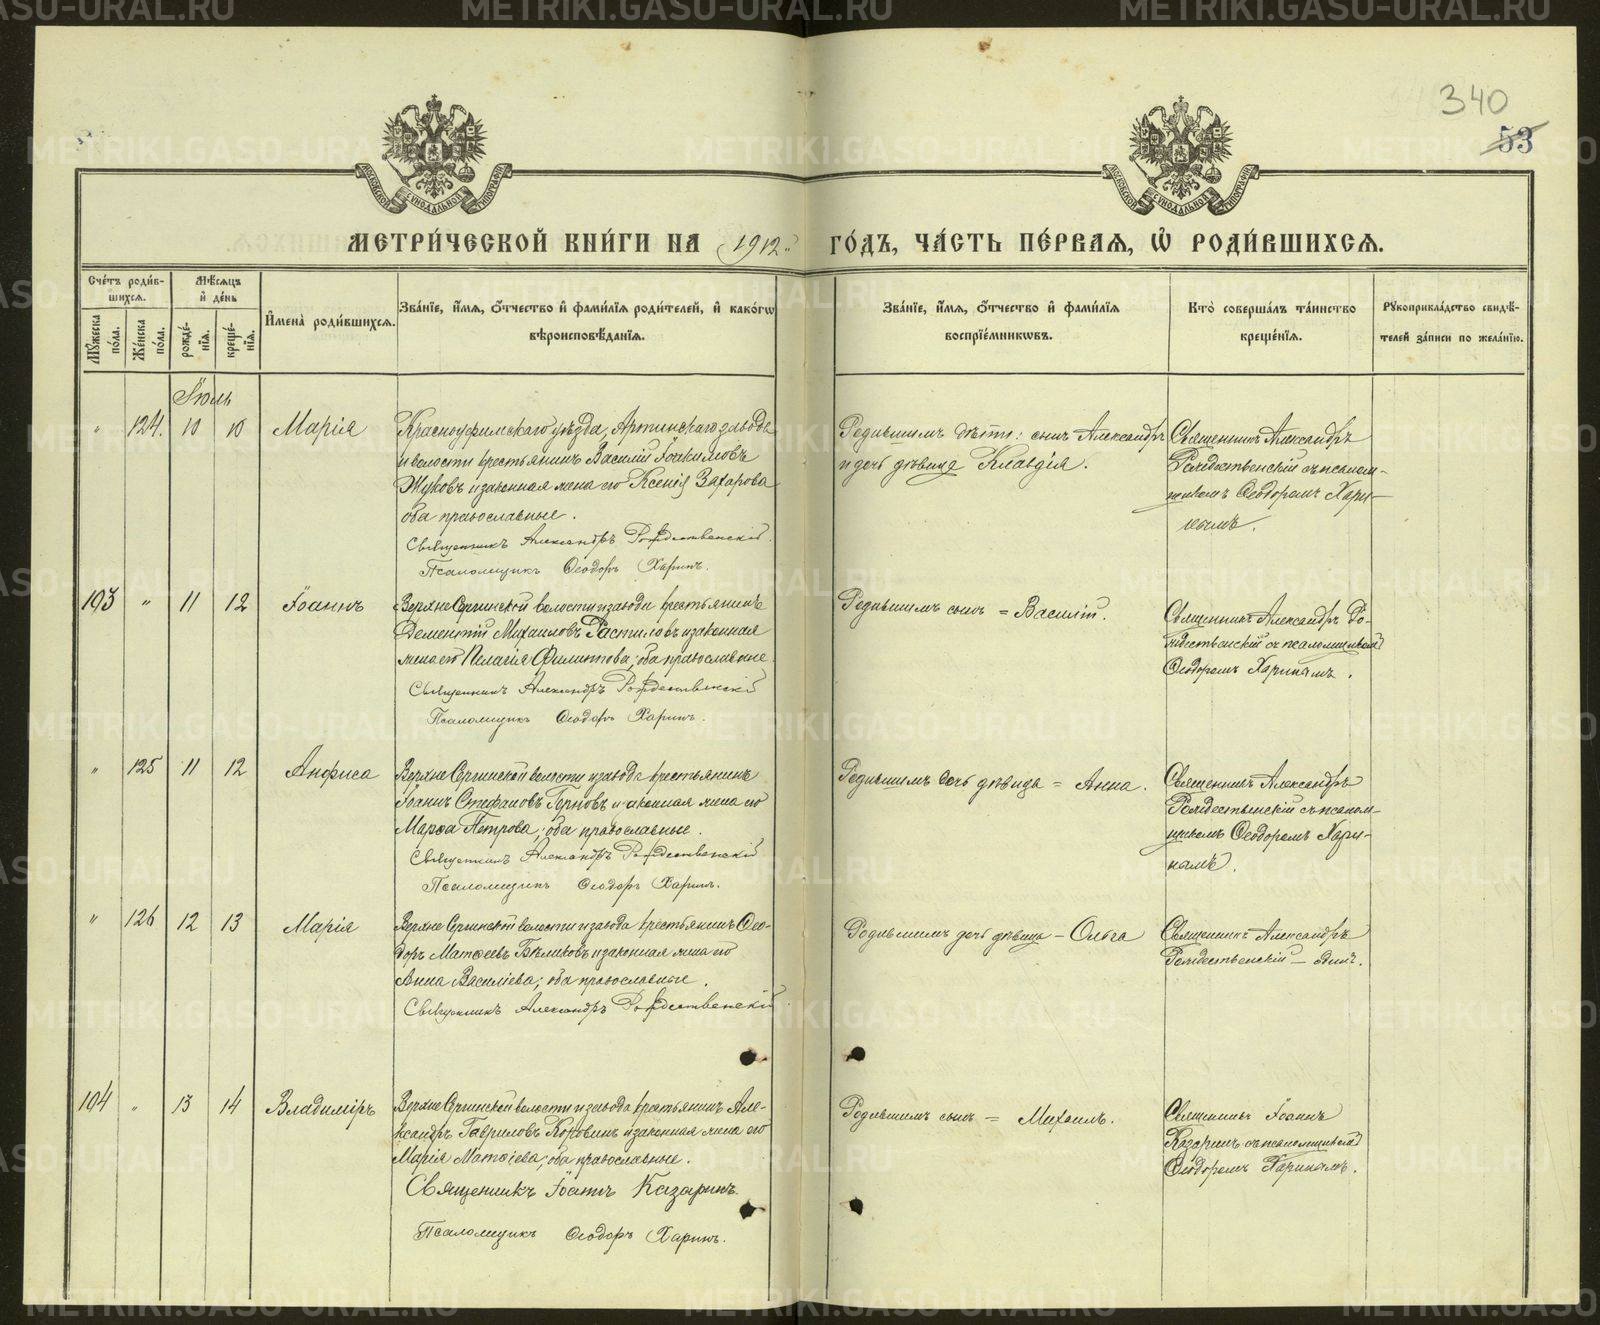 340
53
МОСКОВСКОЙ СѴНОДАЛЬНОЙ ТИПОГРАФІИ
МОСКОВСКОЙ СѴНОДАЛЬНОЙ ТИПОГРАФІИ
МЕТРИ́ЧЕСКОЙ КНИ́ГИ НА 1912 ГО́ДЪ, ЧА́СТЬ ПЕ́РВАѦ, Ѽ РОДИ́ВШИХСѦ.
Сче́тъ роди́вшихсѧ.
Мѣ́сѧцъ и҆ де́нь
Мꙋ́жеска по́ла.
Же́нска по́ла.
рожде́нїѧ.
креще́нїѧ.
И҆мена̀ роди́вшихсѧ.
Зва́нїе, и҆́мѧ, ѻ҆́тчество и҆ фами́лїѧ роди́телей, и҆ како́гѡ
вѣроисповѣ́данїѧ.
Зва́нїе, и҆́мѧ, ѻ҆́тчество и҆ фами́лїѧ
воспрїе́мникѡвъ.
Кто̀ соверша́лъ та́инство
креще́нїѧ.
Рꙋкоприкла́дство свидѣ́-
телей за́писи по жела́нїю.
Іюль
" 124. 10 10 Марія
Красноуфимскаго уѣзда, Артинскаго завода
и волости крестьянинъ Василій Іоакимовъ
Жуковъ и законная жена его Ксенія Захарова
оба православные.
Священникъ Александръ Рождественскій.
Псаломщикъ Ѳеодоръ Харинъ.
Родившимъ дѣти: сынъ Александръ
и дочь дѣвица Клавдія.
Священникъ Александръ
Рождественскій съ псалом-
щикомъ Ѳеодоромъ Хари-
нымъ.
103 " 11 12 Іоаннъ
Верхне Сергинской волости и завода крестьянинъ
Дементій Михаиловъ и законная
жена его Пелагія Филиппова, оба православные.
Священникъ Александръ Рождественскій
Псаломщикъ Ѳеодоръ Харинъ.
Родившимъ сынъ = Василій.
Священникъ Александръ Ро-
ждественскій съ псаломщикомъ
Ѳеодоромъ Харинымъ.
" 125 11 12 Анфиса
Верхне Сергинской волости и завода крестьянинъ
Іоаннъ Стефановъ и законная жена его
Марѳа Петрова, оба православные.
Священникъ Александръ Рождественскій
Псаломщикъ Ѳеодоръ Харинъ.
Родившимъ дочь дѣвица = Анна.
Священникъ Александръ
Рождественскій съ псалом-
щикомъ Ѳеодоромъ Хари-
нымъ.
" 126 12 13 Марія
Верхне Сергинской волости и завода крестьянинъ Ѳео-
доръ Матѳеевъ и законная жена его
Анна Василіева; оба православные.
Священникъ Александръ Рождественскій
Родившимъ дочь дѣвица – Ольга
Священникъ Александръ
Рождественскій – одинъ.
104 " 13 14 Владиміръ
Верхне Сергинской волости и завода крестьянинъ Але-
ксандръ Гавриловъ Коровинъ и законная жена его
Марія Матѳіева, оба православные.
Священникъ Іоаннъ Казаринъ.
Псаломщикъ Ѳеодоръ Харинъ.
Родившимъ сынъ = Михаилъ.
Священникъ Іоаннъ
Казаринъ съ псаломщикомъ
Ѳеодоромъ Харинымъ.
METRIKI.GASO-URAL.RU